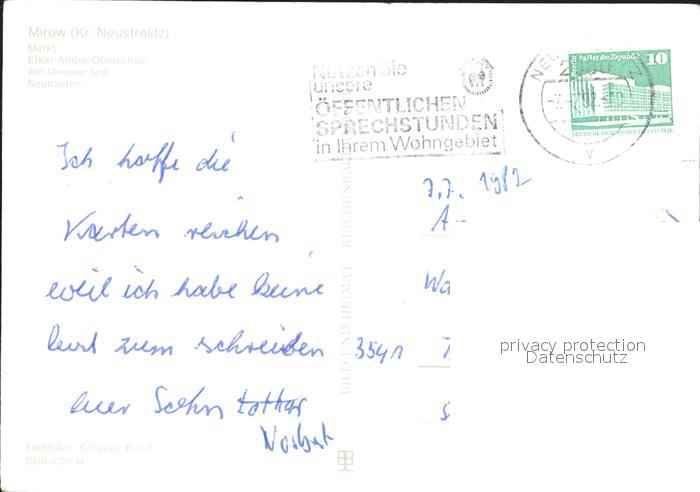 Mirow (Kr. Neustrelitz)
Markt
Etkar-André-Oberschule
Am Mirower See
Neubauten
Nutzen Sie
unsere
ÖFFENTLICHEN
SPRECHSTUNDEN
in Ihrem Wohngebiet
Berlin Palast der Republik 10
DEUTSCHE DEMOKRATISCHE REPUBLIK
Ich hoffe die
Karten reichen
weil ich habe keine
lust zum schreiben
euer Sohn Lothar
Norbert
7.7. 1982
A
Wa
3541
BILD UND HEIMAT REICHENBACH
privacy protection
Datenschutz
Farbfotos: Corazza, Berlin
DDR 0,20 M